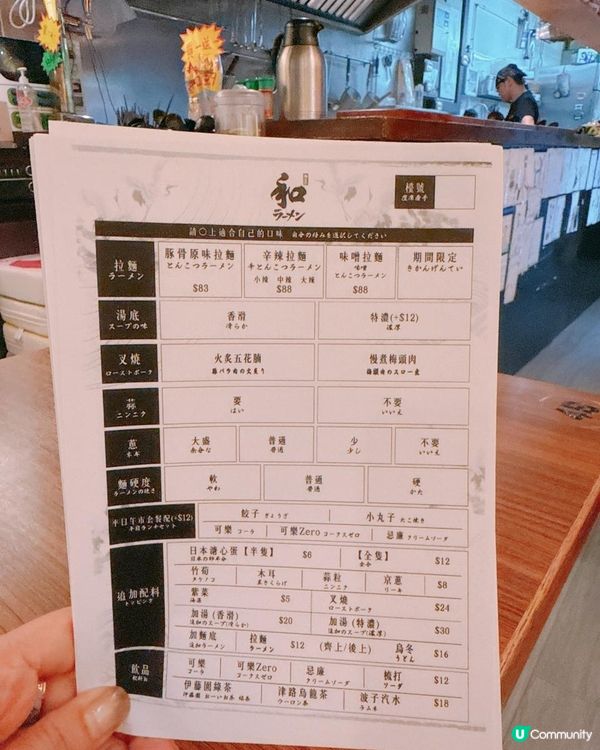 和
ラーメン
檯號
請〇上適合自己的口味 お自分の好みを選択してください
拉麵
ラーメン
豚骨原味拉麵
とんこつラーメン
$83
辛辣拉麵
辛とんこつラーメン
小辣 中辣 大辣
$88
味噌拉麵
味噌
とんこつラーメン
$88
期間限定
きかんげんてい
湯底
スープの味
香滑
滑らか
特濃(+$12)
濃厚
叉燒
ローストポーク
火炙五花腩
豚バラ肉の火炙り
慢煮梅頭肉
梅頭肉のスロー煮
蒜
ニンニク
要
はい
不要
いいえ
蔥
ネギ
大盛
余分な
普通
普通
少
少し
不要
いいえ
麵硬度
ラーメンの硬さ
軟
やわ
普通
普通
硬
かた
平日午市套餐配(+$12)
平日ランチセット
餃子 ぎょうざ
小丸子 たこ焼き
可樂 コーラ
可樂Zero コークスゼロ
忌廉 クリームソーダ
追加配料
トッピング
日本溏心蛋【半隻】 $6
【全隻】 $12
竹筍
タケノコ
木耳
きくらげ
蒜粒
ニンニク
京蔥
リーキ
$8
紫菜
海苔
$5
叉燒
ローストポーク
$24
加湯 (香滑)
追加のスープ(滑らか)
$20
加湯 (特濃)
追加のスープ(濃厚)
$30
加麵底
追加ラーメン
拉麵
ラーメン
$12
(齊上/後上)
烏冬
うどん
$16
飲品
飲料水
可樂
コーラ
可樂Zero
コークスゼロ
忌廉
クリームソーダ
梳打
ソーダ
$12
伊藤園綠茶
伊藤園 おーいお茶 緑茶
津路烏龍茶
ウーロン茶
波子汽水
ラムネ
$18
U Community